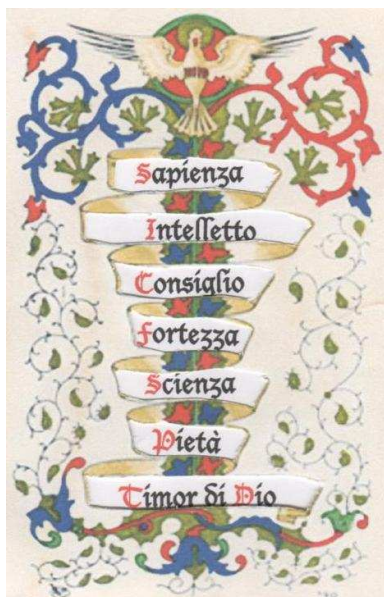 Sapienza
Intelletto
Consiglio
Fortezza
Scienza
Pietà
Timor di Dio